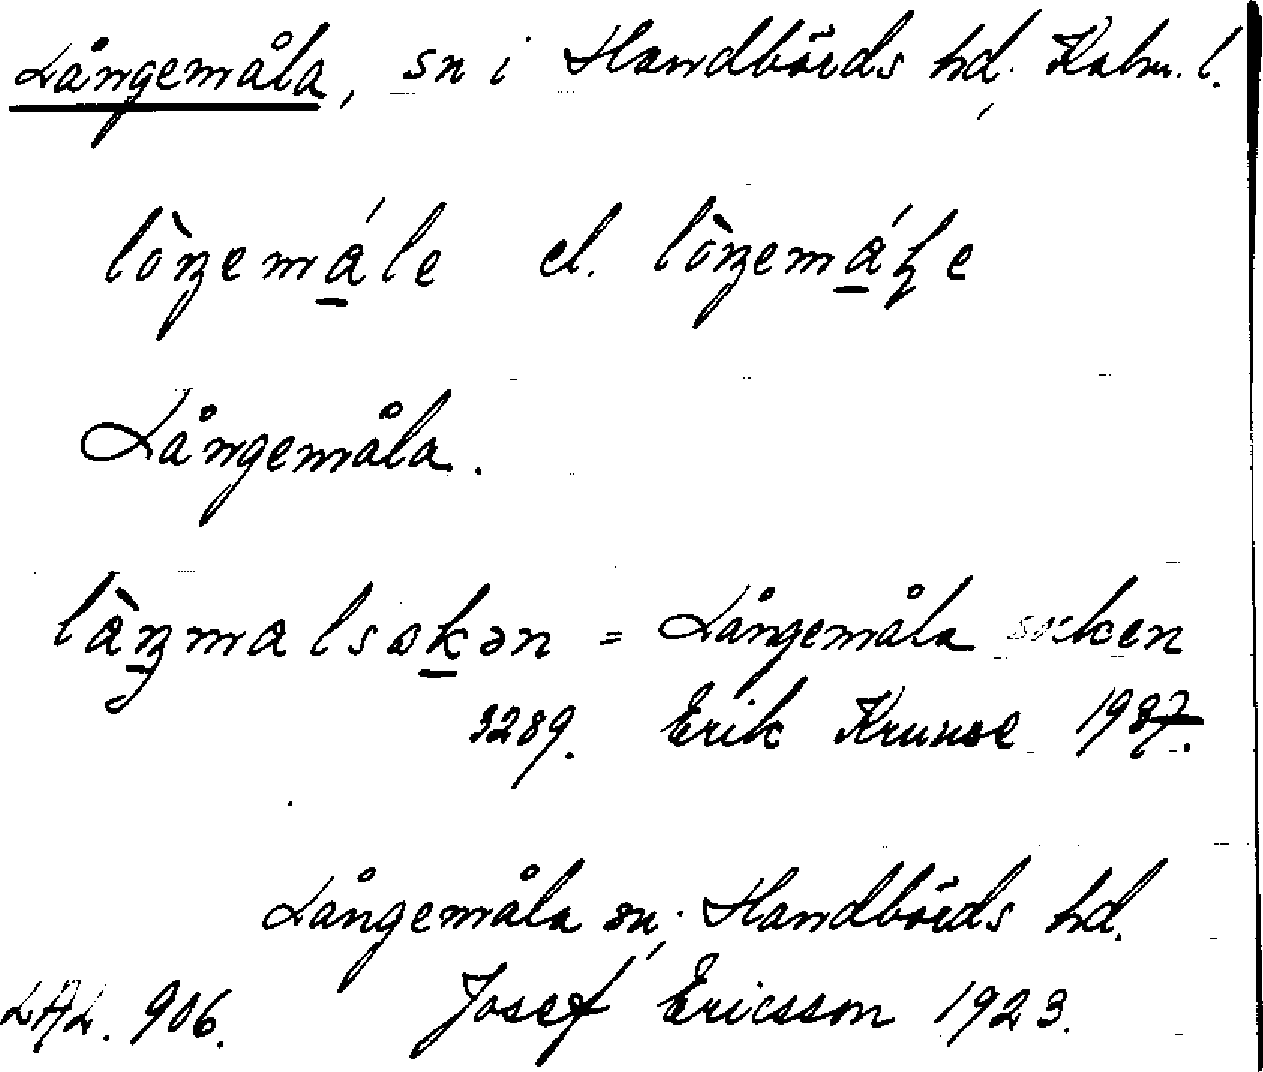 Långemåla, sn i Handbörds hd, Kalm. l.
lòŋemále el. lòŋemáɭe
Långemåla.
làŋmalsokən = Långemåla socken
3289. Erik Krunse 1937.
Långemåla sn, Handbörds hd.
LAL. 906. Josef Ericsson 1923.